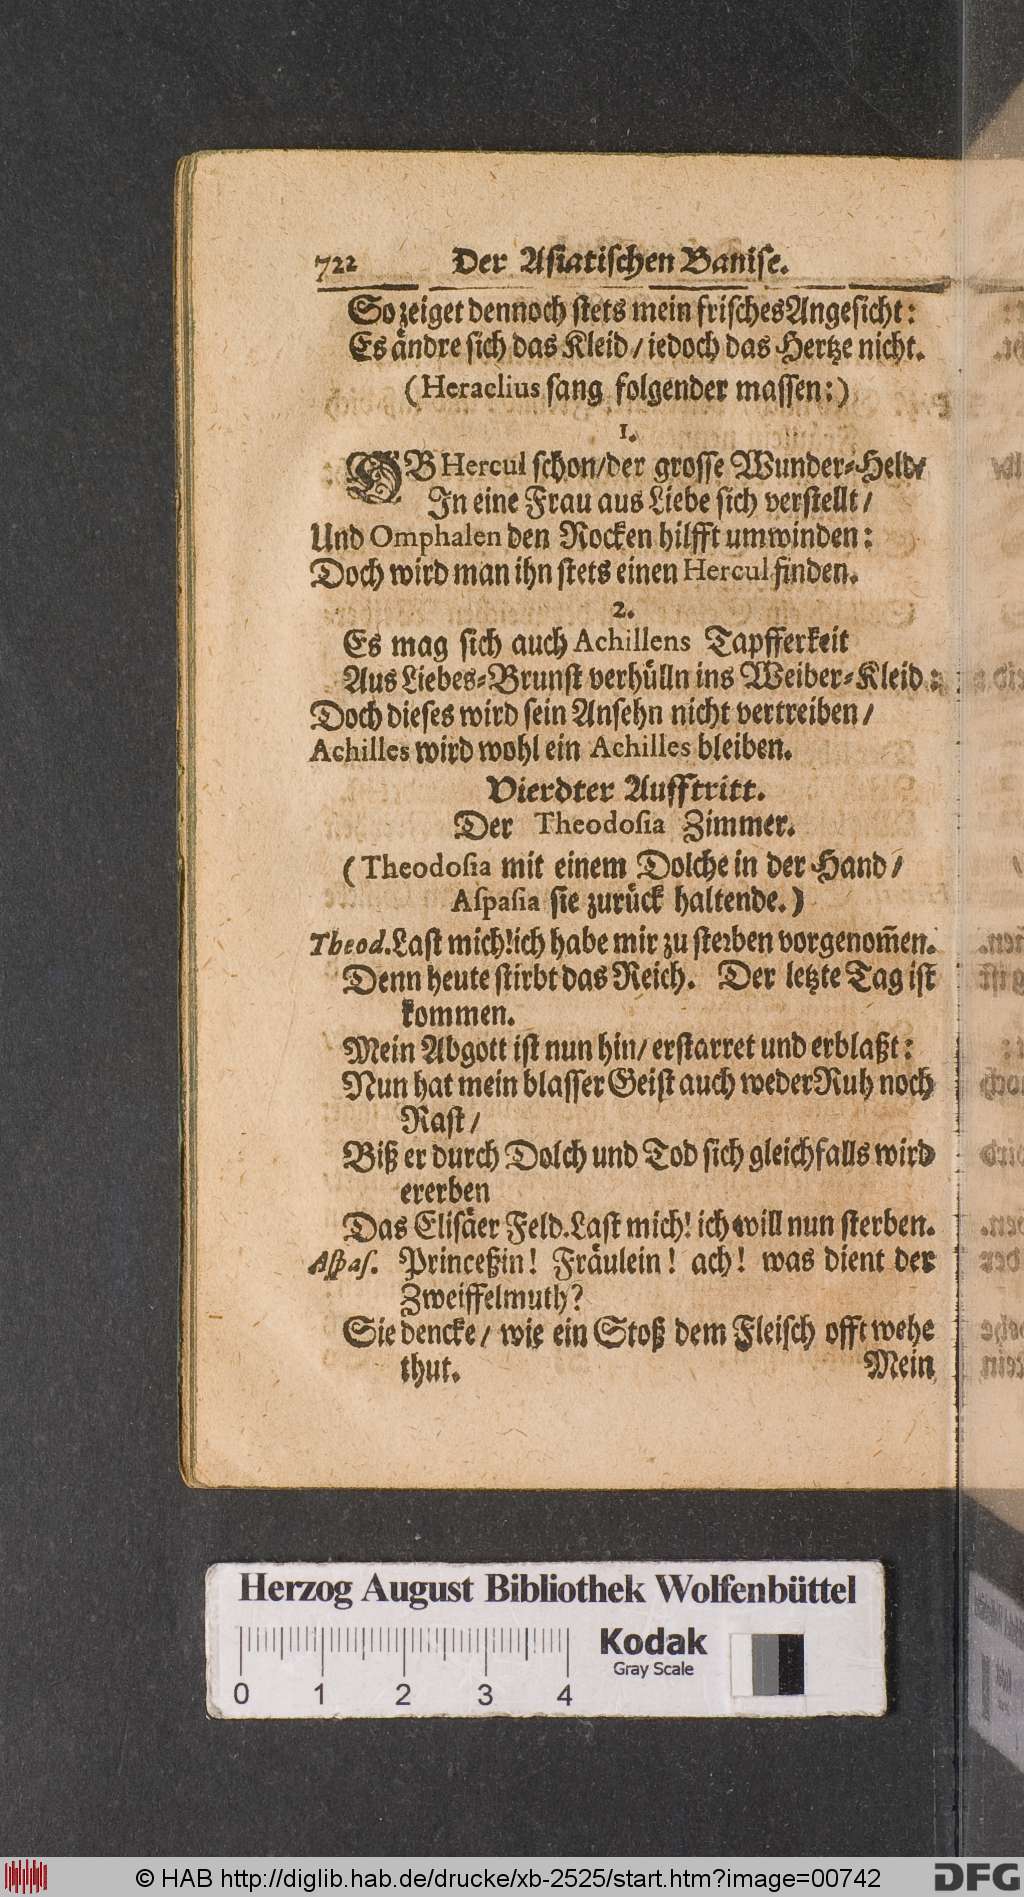 722 Der Asiatischen Banise.
So zeiget dennoch stets mein frisches Angesicht:
Es ändre sich das Kleid / iedoch das Hertze nicht.
(Heraclius sang folgender massen:)
1.
OB Hercul schon/der grosse Wunder-Held/
In eine Frau aus Liebe sich verstellt /
Und Omphalen den Rocken hilfft umwinden:
Doch wird man ihn stets einen Hercul finden.
2.
Es mag sich auch Achillens Tapfferkeit
Aus Liebes-Brunst verhülln ins Weiber-Kleid:
Doch dieses wird sein Ansehn nicht vertreiben /
Achilles wird wohl ein Achilles bleiben.
Vierdter Aufftritt.
Der Theodosia Zimmer.
(Theodosia mit einem Dolche in der Hand /
Aspasia sie zurück haltende.)
Theod. Last mich! ich habe mir zu sterben vorgenom̅en.
Denn heute stirbt das Reich. Der letzte Tag ist
kommen.
Mein Abgott ist nun hin/ erstarret und erblaßt:
Nun hat mein blasser Geist auch weder Ruh noch
Rast /
Biß er durch Dolch und Tod sich gleichfalls wird
ererben
Das Elisäer Feld. Last mich! ich will nun sterben.
Aspas. Princeßin! Fräulein! ach! was dient der
Zweiffelmuth?
Sie dencke / wie ein Stoß dem Fleisch offt wehe
thut. Mein
Herzog August Bibliothek Wolfenbüttel
0 1 2 3 4
Kodak
Gray Scale
© HAB http://diglib.hab.de/drucke/xb-2525/start.htm?image=00742
DFG